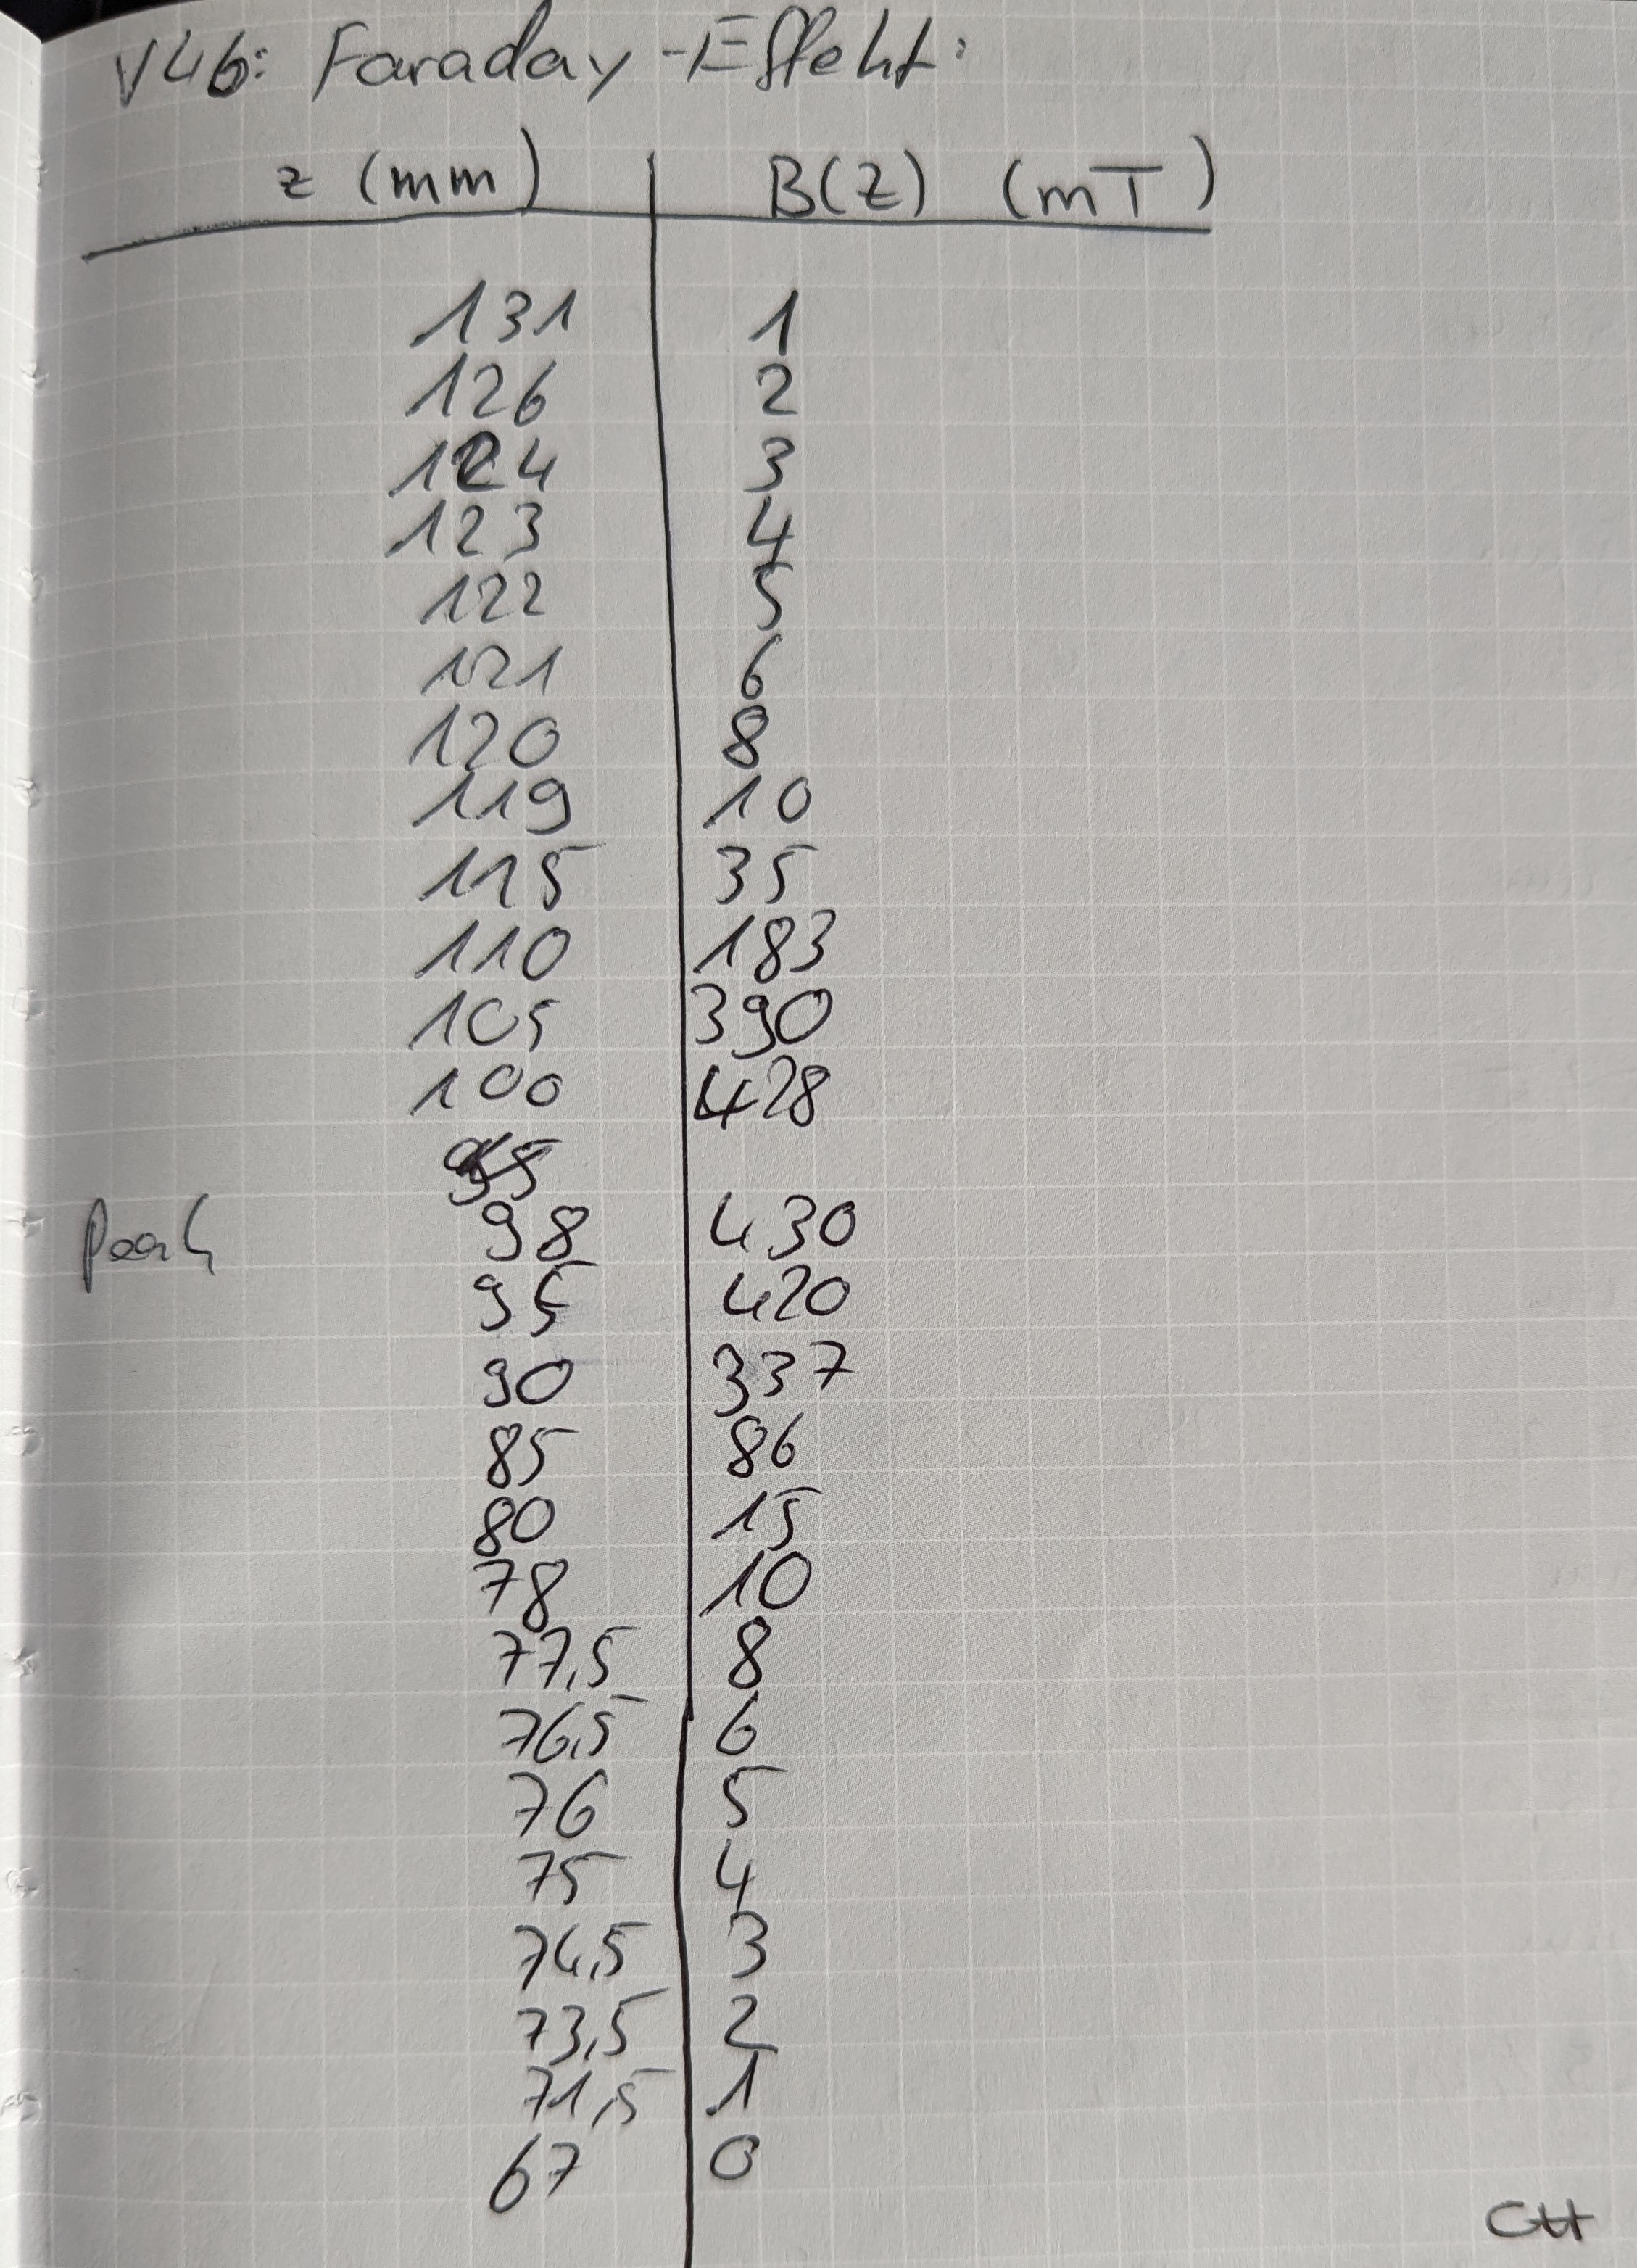 V46: Faraday-Effekt:
z (mm) B(z) (mT)
131 1
126 2
124 3
123 4
122 5
121 6
120 8
119 10
115 35
110 183
105 390
100 428
Peak 98 430
95 420
90 337
85 86
80 15
78 10
77,5 8
76,5 6
76 5
75 4
74,5 3
73,5 2
71,5 1
67 0